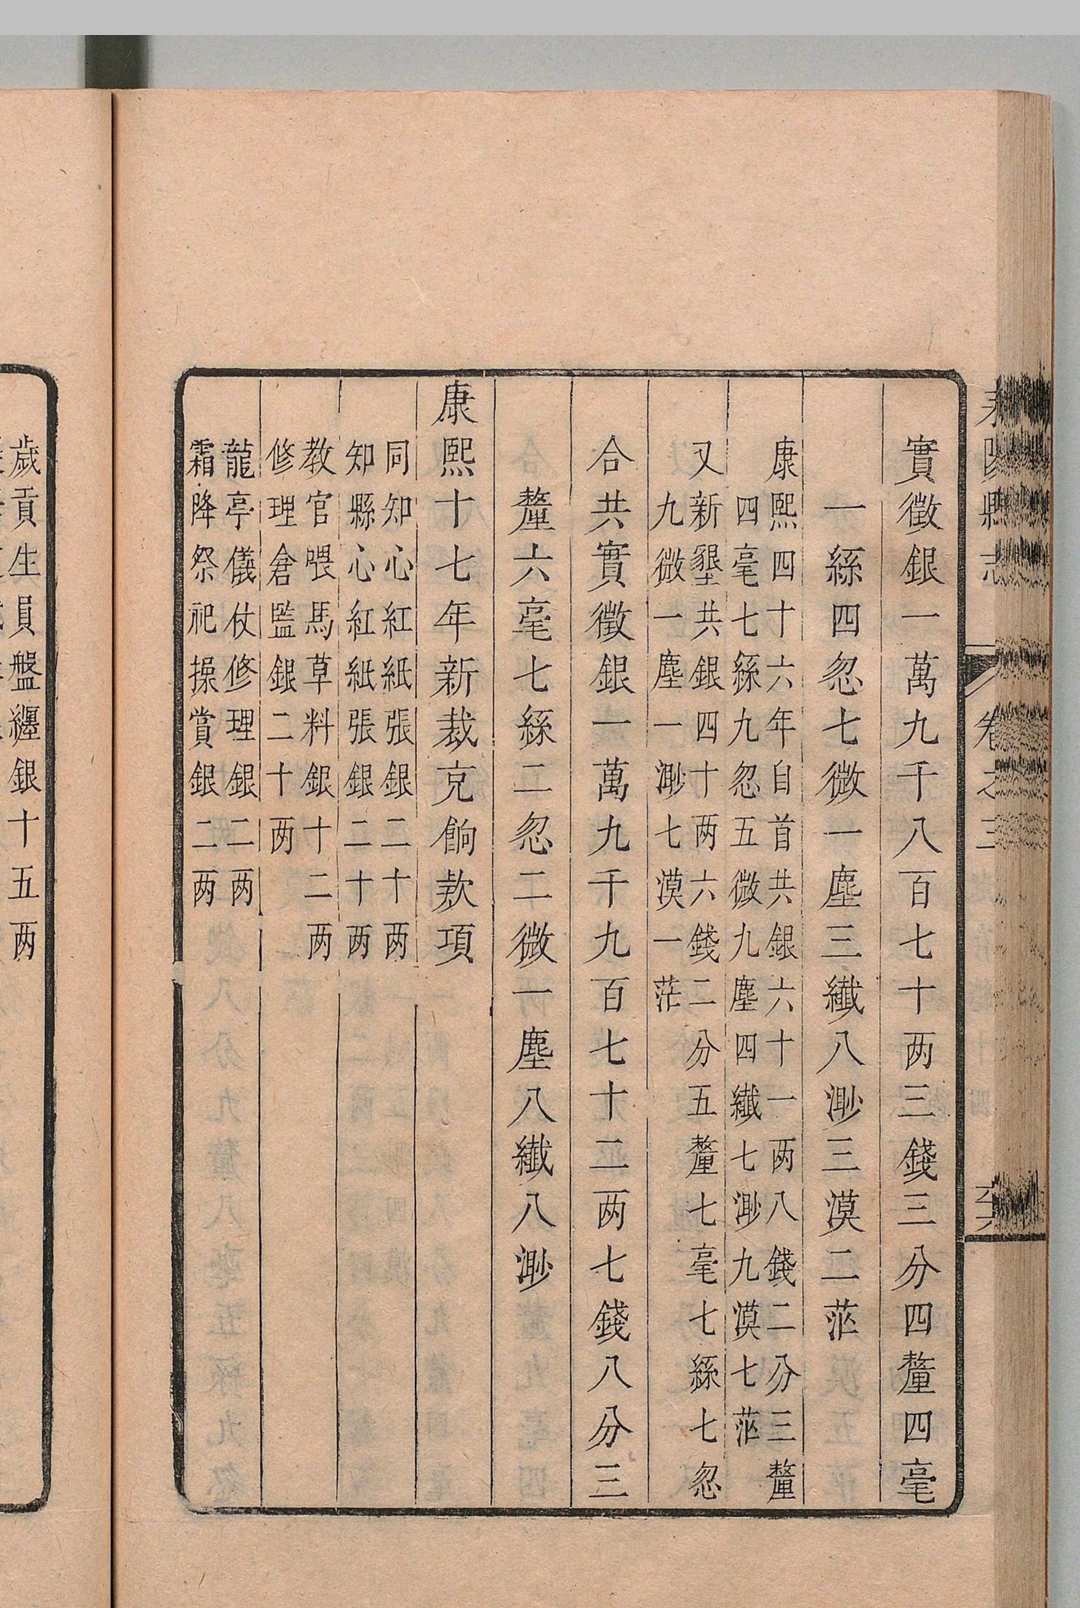 耒陽縣志
卷之三
實徵銀一萬九千八百七十两三錢三分四釐四毫
一絲四忽七微一塵三纖八渺三漠二茫
康熙四十六年自首共銀六十一两八錢二分三釐
四毫七絲九忽五微九塵四纖七渺九漠七茫
又新墾共銀四十两六錢二分五釐七毫七絲七忽
九微一塵一渺七漠一茫
合共實徵銀一萬九千九百七十二两七錢八分三
釐六毫七絲二忽二微一塵八纖八渺
康熙十七年新裁克餉款項
同知心紅紙張銀二十两
知縣心紅紙張銀二十两
教官喂馬草料銀十二两
修理倉監銀二十两
龍亭儀仗修理銀二两
霜降祭祀操賞銀二两
歲貢生員盤纏銀十五两